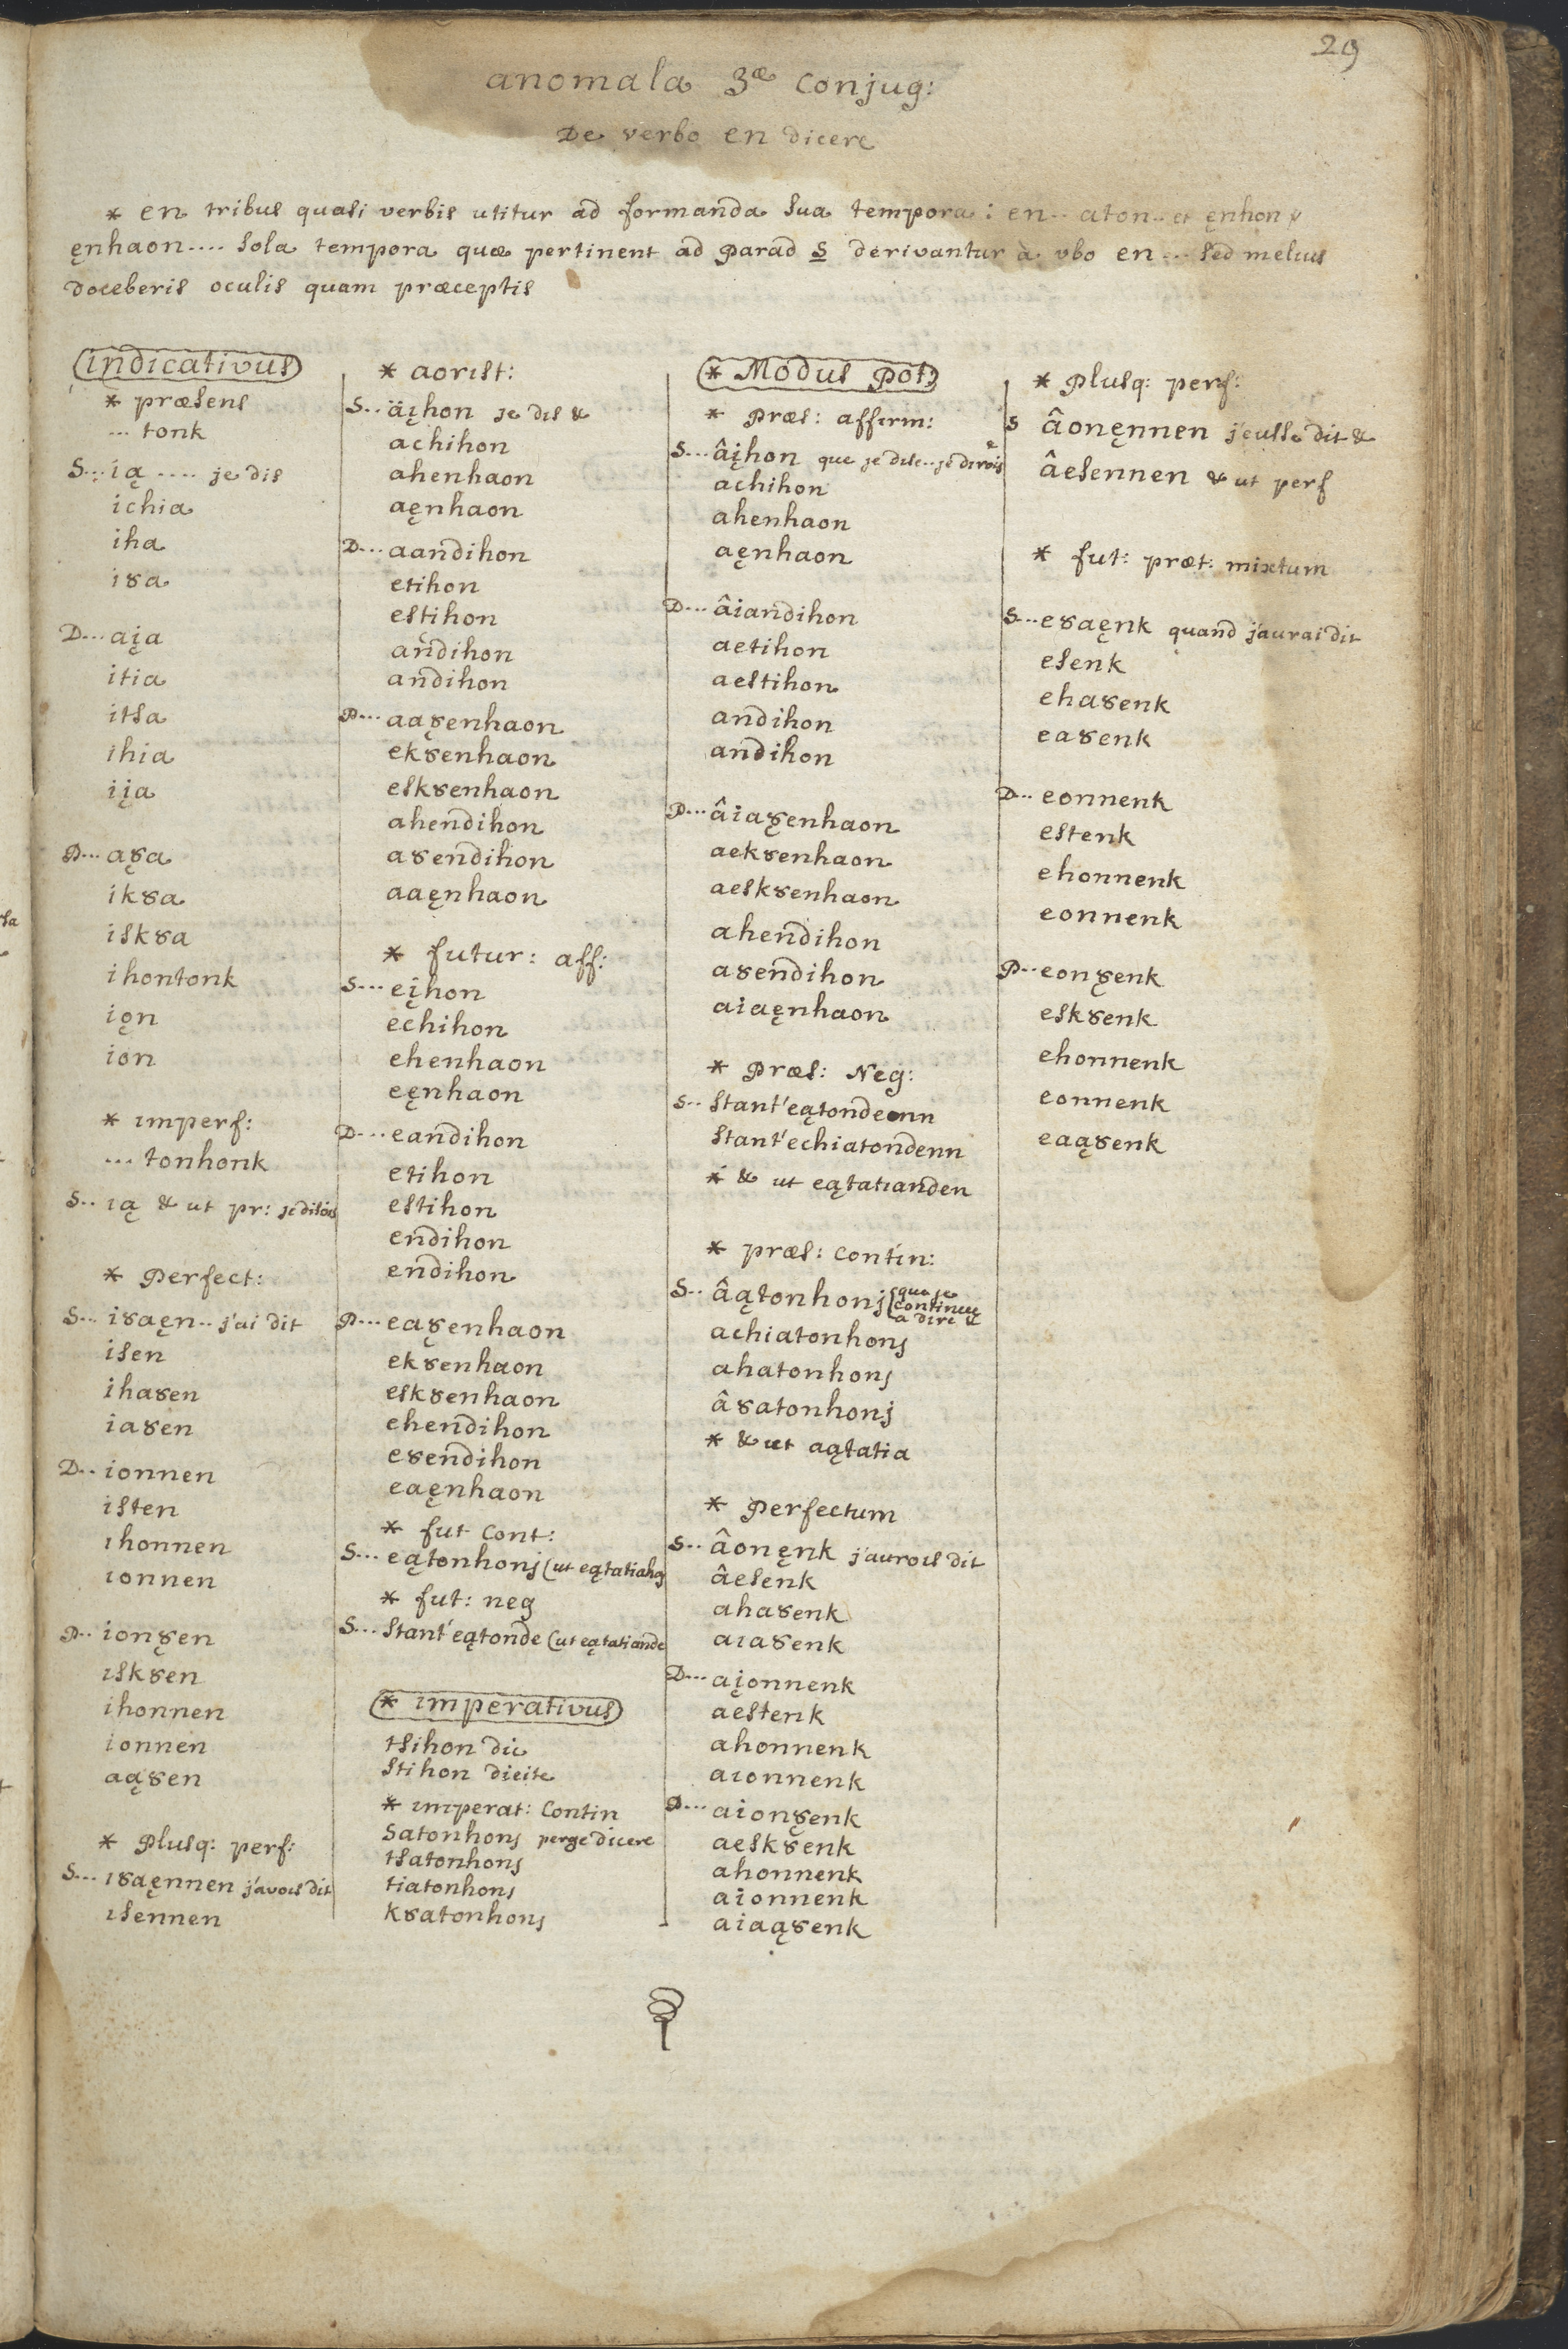 29
anomala 3æ Conjug:
De verbo en dicere
* en tribus quasi verbis utitur ad formanda sua tempora : en.. aton.. et ęnhon
ęnhaon.... sola tempora quæ pertinent ad Parad S derivantur à vbo en... sed melius
doceberis oculis quam præceptis
indicativus
* præsens
... tonk
S... ią .... je dis
ichia
iha
i8a
D... aįa
itia
itsa
ihia
iįa
P... ą8a
ik8a
isk8a
ihontonk
iǫn
ion
* imperf:
... tonhonk
S.. ią & ut pr: je disois
* Perfect:
S... i8aęn.. j'ai dit
isen
iha8en
ia8en
D.. ionnen
isten
ihonnen
ionnen
P.. ion8̨en
isk8en
ihonnen
ionnen
aą8en
* Plusq: perf:
S... i8aęnnen j'avois dit
isennen
* aorist:
S... äįhon je dis &
achihon
ahenhaon
aęnhaon
D... aandihon
etihon
estihon
andihon
andihon
P... aa8̨enhaon
ek8enhaon
esk8enhaon
ahendihon
a8endihon
aaęnhaon
* futur: aff:
S... eįhon
echihon
ehenhaon
eęnhaon
D... eandihon
etihon
estihon
endihon
endihon
P... ea8̨enhaon
ek8enhaon
esk8enhaon
ehendihon
e8endihon
eaęnhaon
* fut Cont:
S... eątonhonj (ut eątatiahą
* fut: neg
S... stant'eątonde (ut eątatiande
* imperativus
tsihon dic
stihon dicite
* imperat: Contin
Satonhonj perge dicere
tsatonhonj
tiatonhonj
k8atonhonj
* Modus Pot:
* Præs: affirm:
S... âįhon que je dise.. je dirois
achihon
ahenhaon
aęnhaon
D... âiandihon
aetihon
aestihon
andihon
andihon
P... âia8̨enhaon
aek8enhaon
aesk8enhaon
ahendihon
a8endihon
aiaęnhaon
* Præs: Neg:
S.. stant'eątondeonn
stant'echiatondenn
* & ut eątatianden
* præs: Contin:
S.. âątonhonj (que je
continue
a dire &
achiatonhonj
ahatonhonj
â8atonhonj
* & ut aątatia
* Perfectum
S.. âonęnk j'aurois dit
âesenk
aha8enk
aia8enk
D... aįonnenk
aestenk
ahonnenk
aionnenk
P... aion8̨enk
aesk8enk
ahonnenk
aionnenk
aiaą8enk
* Plusq: perf:
S âonęnnen j'eusse dit &
âesennen & ut perf
* fut: præt: mixtum
S... e8aęnk quand j'aurai dit
esenk
eha8enk
ea8enk
D... eonnenk
estenk
ehonnenk
eonnenk
P... eon8̨enk
esk8enk
ehonnenk
eonnenk
eaą8enk